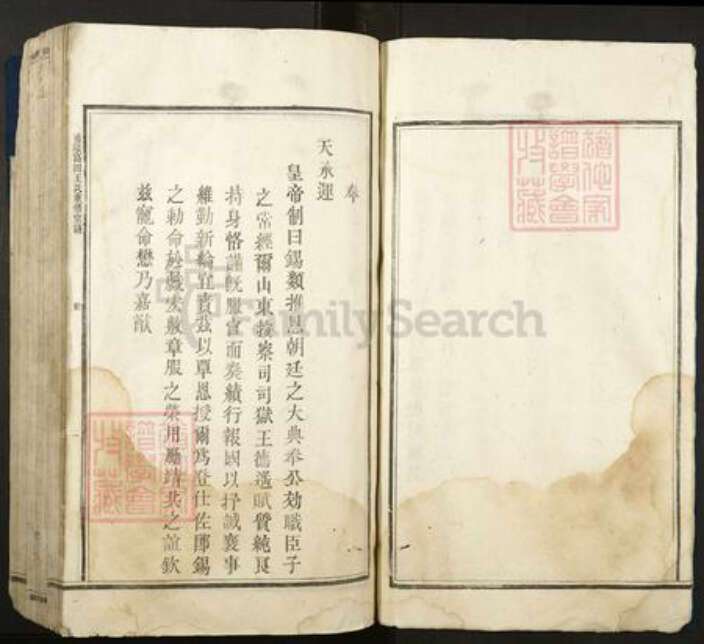 奉
天承運
皇帝制曰錫類推恩朝廷之大典奉公効職臣子
之常經爾山東按察司司獄王德遙賦質純良
持身恪謹旣服官而奏績行報國以抒誠襄事
維勤新綸宜賁茲以覃恩授爾爲登仕佐郎錫
之勅命於戲式敷章服之榮用勵靖共之誼欽
茲寵命懋乃嘉猷
FamilySearch